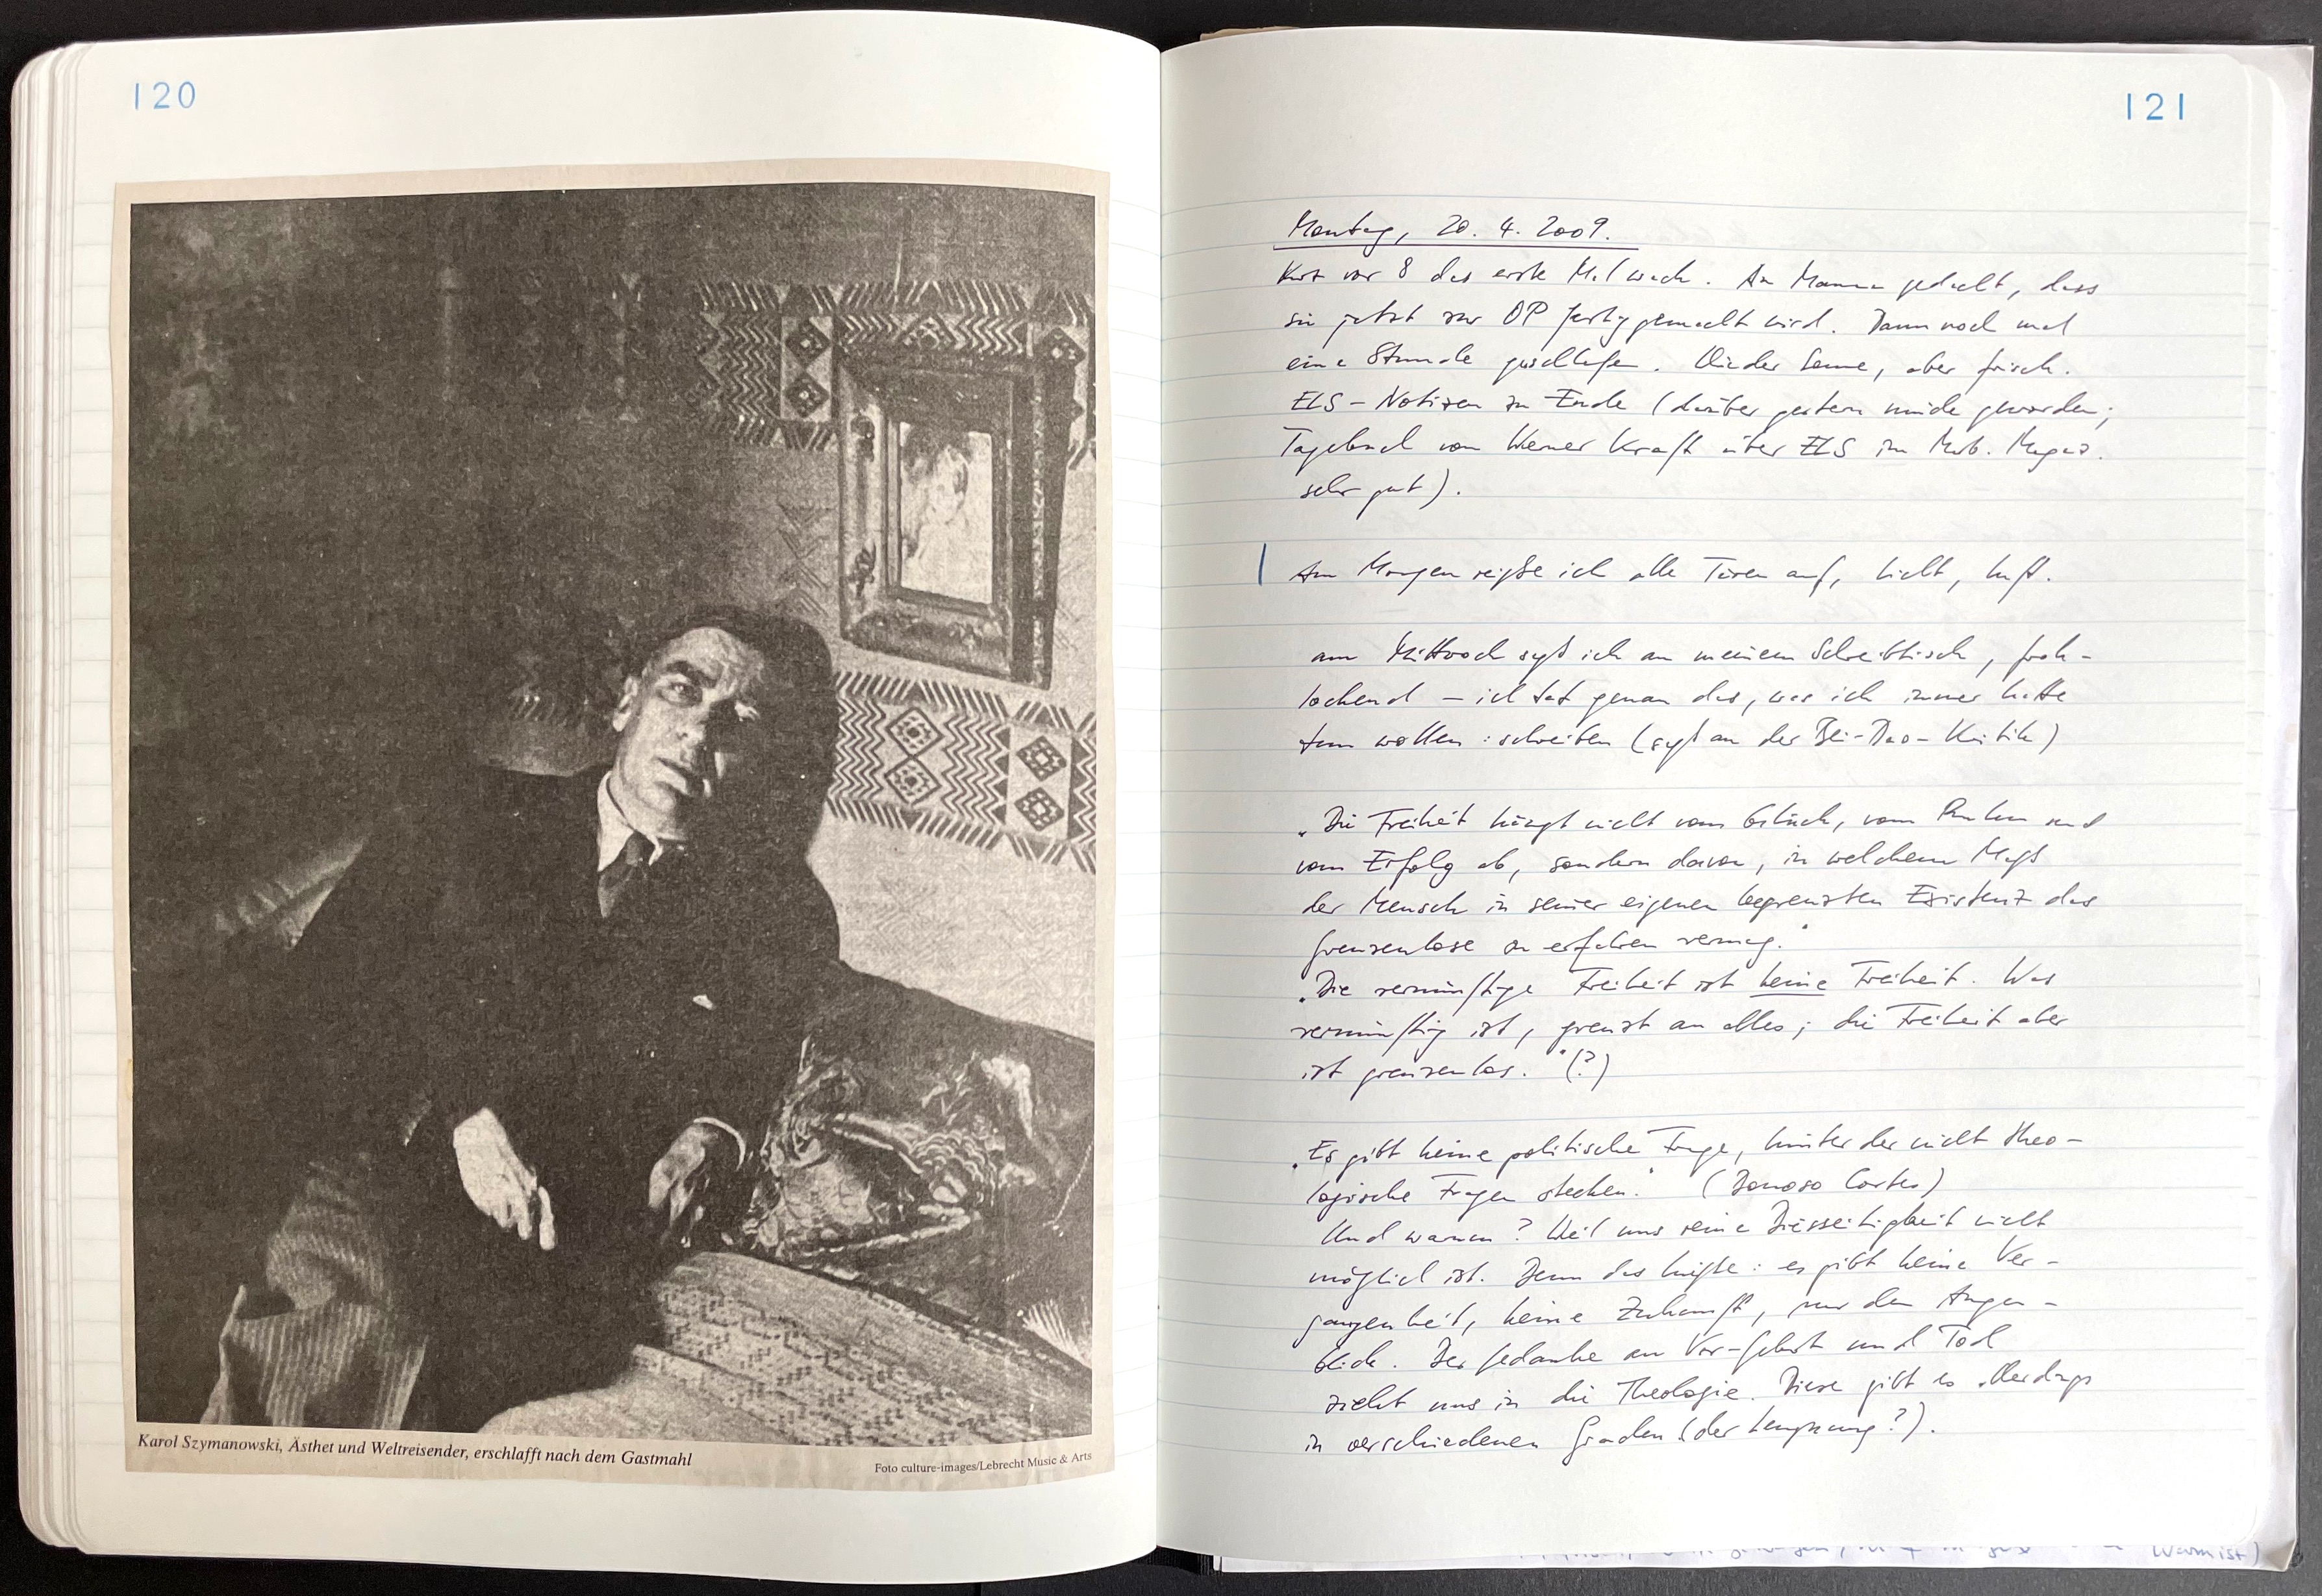 120
Karol Szymanowski, Ästhet und Weltreisender, erschlafft nach dem Gastmahl
Foto culture-images/Lebrecht Music & Arts
121
Montag, 20. 4. 2009.
Kurz vor 8 das erste Mal wach. An Mama gedacht, dass
sie jetzt zur OP fertiggemacht wird. Dann noch mal
eine Stunde geschlafen. Wieder Sonne, aber frisch.
ELS-Notizen zu Ende (darüber gestern müde geworden;
Tagebuch von Werner Kraft über ELS im Marb. Magaz.
sehr gut).
Am Morgen reiße ich alle Türen auf, Licht, Luft.
am Mittwoch saß ich an meinem Schreibtisch, froh-
lockend – ich tat genau das, was ich immer hatte
tun wollen: schreiben (saß an der Bei-Dao-Kritik)
„Die Freiheit hängt nicht vom Glück, vom Ruhm und
vom Erfolg ab, sondern davon, in welchem Maß
der Mensch in seiner eigenen begrenzten Existenz das
Grenzenlose zu erfahren vermag."
„Die vernünftige Freiheit ist keine Freiheit. Was
vernünftig ist, grenzt an alles; die Freiheit aber
ist grenzenlos." (?)
„Es gibt keine politische Frage, hinter der nicht theo-
logische Fragen stecken." (Donoso Cortes)
Und warum? Weil uns reine Diesseitigkeit nicht
möglich ist. Denn das hieße: es gibt keine Ver-
gangenheit, keine Zukunft, nur den Augen-
blick. Der Gedanke an Vor-Geburt und Tod
zieht uns in die Theologie. Diese gibt es allerdings
in verschiedenen Graden (der Leugnung?).
Warm ist)